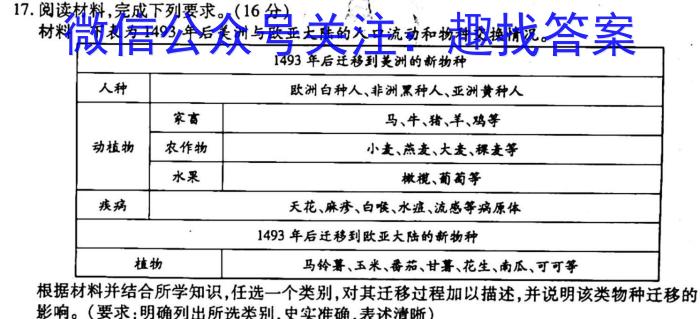 17.阅读材料,完成下列要求。(16分)
微信公众号关注:趣找答案
材料 下表为1493年后美洲与欧亚大陆的人口流动和物种交换情况。
1493年后迁移到美洲的新物种
人种 欧洲白种人、非洲黑种人、亚洲黄种人
动植物 家畜 马、牛、猪、羊、鸡等
农作物 小麦、燕麦、大麦、稞麦等
水果 橄榄、葡萄等
疾病 天花、麻疹、白喉、水痘、流感等病原体
1493年后迁移到欧亚大陆的新物种
植物 马铃薯、玉米、番茄、甘薯、花生、南瓜、可可等
根据材料并结合所学知识,任选一个类别,对其迁移过程加以描述,并说明该类物种迁移的
影响。(要求:明确列出所选类别,史实准确,表述清晰)